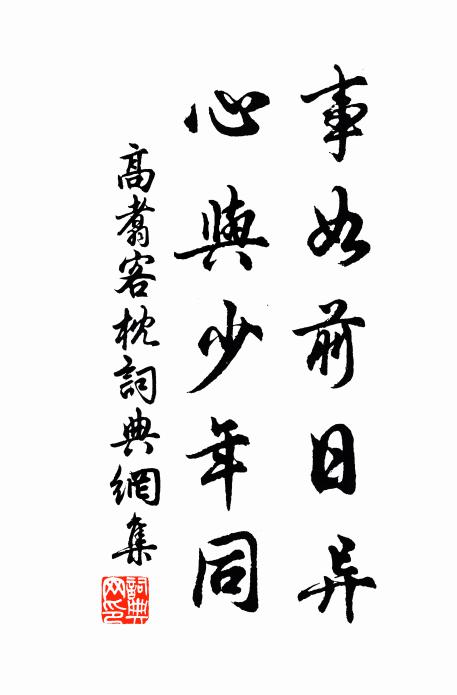 事如前日异
心與少年同
高翥客枕詞典網集
詞典网印